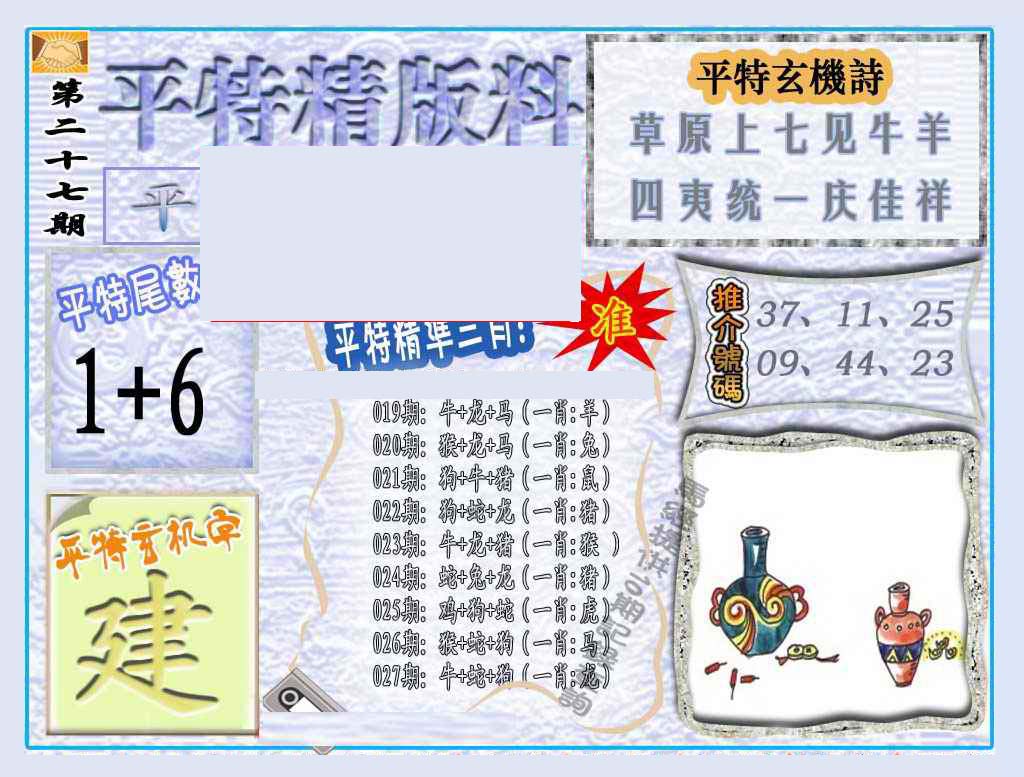 第二十七期
平特精版料
平
平特玄機詩
草原上七见牛羊
四夷统一庆佳祥
平特尾數
1+6
平特精準三肖!
准
推介號碼
37、11、25
09、44、23
019期: 牛+龙+马(一肖:羊)
020期: 猴+龙+马(一肖:兔)
021期: 狗+牛+猪(一肖:鼠)
022期: 狗+蛇+龙(一肖:猪)
023期: 牛+龙+猪(一肖:猴 )
024期: 蛇+兔+龙(一肖:猪)
025期: 鸡+狗+蛇(一肖:虎)
026期: 猴+蛇+狗(一肖:马)
027期: 牛+蛇+狗(一肖:龙)
平特玄机字
建